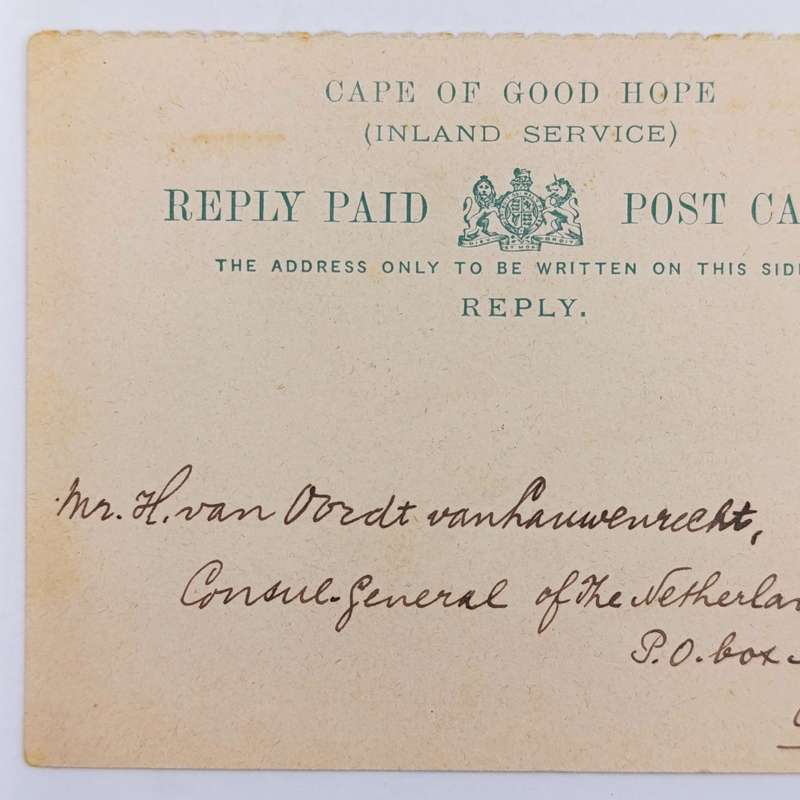 CAPE OF GOOD HOPE
(INLAND SERVICE)
REPLY PAID POST CA
THE ADDRESS ONLY TO BE WRITTEN ON THIS SIDE
REPLY.
Mr. H. van Oordt van Lauwenrecht,
Consul-General of The Netherlan
P.O. box